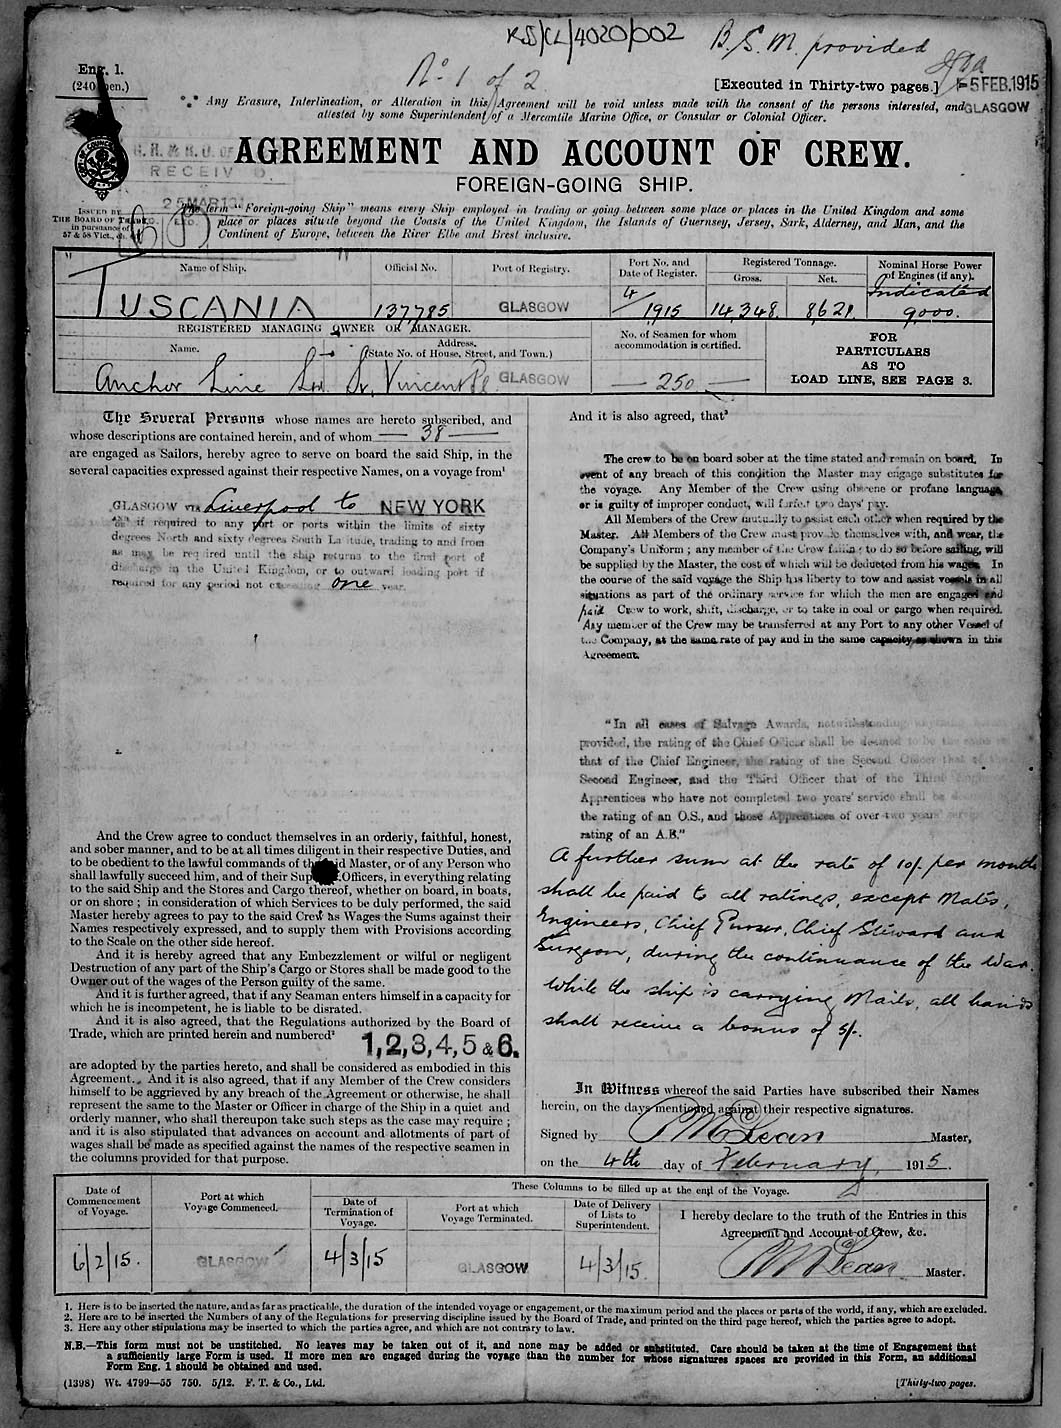 KSS/CL/4020/002
B.S.M. provided
No 1 of 2
Eng. 1.
[Executed in Thirty-two pages.]
-5 FEB.1915
GLASGOW
Any Erasure, Interlineation, or Alteration in this Agreement will be void unless made with the consent of the persons interested, and
attested by some Superintendent of a Mercantile Marine Office, or Consular or Colonial Officer.
AGREEMENT AND ACCOUNT OF CREW.
FOREIGN-GOING SHIP.
ISSUED BY
THE BOARD OF TRADE
in pursuance of
57 & 58 Vict.,
The term "Foreign-going Ship" means every Ship employed in trading or going between some place or places in the United Kingdom and some
place or places situate beyond the Coasts of the United Kingdom, the Islands of Guernsey, Jersey, Sark, Alderney, and Man, and the
Continent of Europe, between the River Elbe and Brest inclusive.
Name of Ship.
Official No.
Port of Registry.
Port No. and
Date of Register.
Registered Tonnage.
Gross.
Net.
Nominal Horse Power
of Engines (if any).
TUSCANIA
137785
GLASGOW
4/1915
14,348
8,621
Indicated
9,000.
REGISTERED MANAGING OWNER OR MANAGER.
Name.
Address.
(State No. of House, Street, and Town.)
No. of Seamen for whom
accommodation is certified.
FOR
PARTICULARS
AS TO
LOAD LINE, SEE PAGE 3.
Anchor Line Ltd. St. Vincent Pl GLASGOW
250
The Several Persons whose names are hereto subscribed, and
whose descriptions are contained herein, and of whom 38
are engaged as Sailors, hereby agree to serve on board the said Ship, in the
several capacities expressed against their respective Names, on a voyage from¹
GLASGOW VIA Liverpool to NEW YORK
if required to any port or ports within the limits of sixty
degrees North and sixty degrees South Latitude, trading to and from
as may be required until the ship returns to the final port of
discharge in the United Kingdom, or to outward loading port if
required for any period not exceeding one year.
And the Crew agree to conduct themselves in an orderly, faithful, honest,
and sober manner, and to be at all times diligent in their respective Duties, and
to be obedient to the lawful commands of the said Master, or of any Person who
shall lawfully succeed him, and of their Superior Officers, in everything relating
to the said Ship and the Stores and Cargo thereof, whether on board, in boats,
or on shore ; in consideration of which Services to be duly performed, the said
Master hereby agrees to pay to the said Crew as Wages the Sums against their
Names respectively expressed, and to supply them with Provisions according
to the Scale on the other side hereof.
And it is hereby agreed that any Embezzlement or wilful or negligent
Destruction of any part of the Ship's Cargo or Stores shall be made good to the
Owner out of the wages of the Person guilty of the same.
And it is further agreed, that if any Seaman enters himself in a capacity for
which he is incompetent, he is liable to be disrated.
And it is also agreed, that the Regulations authorized by the Board of
Trade, which are printed herein and numbered²
1,2,3,4,5 & 6.
are adopted by the parties hereto, and shall be considered as embodied in this
Agreement. And it is also agreed, that if any Member of the Crew considers
himself to be aggrieved by any breach of the Agreement or otherwise, he shall
represent the same to the Master or Officer in charge of the Ship in a quiet and
orderly manner, who shall thereupon take such steps as the case may require ;
and it is also stipulated that advances on account and allotments of part of
wages shall be made as specified against the names of the respective seamen in
the columns provided for that purpose.
And it is also agreed, that³
The crew to be on board sober at the time stated and remain on board. In
event of any breach of this condition the Master may engage substitutes for
the voyage. Any Member of the Crew using obscene or profane language,
or is guilty of improper conduct, will forfeit two days' pay.
All Members of the Crew mutually to assist each other when required by the
Master. All Members of the Crew must provide themselves with, and wear, the
Company's Uniform ; any member of the Crew failing to do so before sailing, will
be supplied by the Master, the cost of which will be deducted from his wages. In
the course of the said voyage the Ship has liberty to tow and assist vessels in all
situations as part of the ordinary service for which the men are engaged and
paid Crew to work, shift, discharge, or to take in coal or cargo when required.
Any member of the Crew may be transferred at any Port to any other Vessel of
the Company, at the same rate of pay and in the same capacity as shown in this
Agreement.
"In all cases of Salvage Awards, notwithstanding anything
provided, the rating of the Chief Officer shall be deemed to be the same as
that of the Chief Engineer, the rating of the Second Officer that of the
Second Engineer, and the Third Officer that of the Third Engineer
Apprentices who have not completed two years' service shall be
the rating of an O.S., and those Apprentices of over two years'
rating of an A.B."
A further sum at the rate of 10/- per month
shall be paid to all ratings, except Mates,
Engineers, Chief Purser, Chief Steward and
Surgeon, during the continuance of the War.
While the ship is carrying Mails, all hands
shall receive a bonus of 5/-.
In Witness whereof the said Parties have subscribed their Names
herein, on the days mentioned against their respective signatures.
Signed by P McLean Master,
on the 4th day of February, 1915.
Date of
Commencement
of Voyage.
Port at which
Voyage Commenced.
These Columns to be filled up at the end of the Voyage.
Date of
Termination of
Voyage.
Port at which
Voyage Terminated.
Date of Delivery
of Lists to
Superintendent.
I hereby declare to the truth of the Entries in this
Agreement and Account of Crew, &c.
6/2/15.
GLASGOW
4/3/15
GLASGOW
4/3/15.
P McLean Master.
1. Here is to be inserted the nature, and as far as practicable, the duration of the intended voyage or engagement, or the maximum period and the places or parts of the world, if any, which are excluded.
2. Here are to be inserted the Numbers of any of the Regulations for preserving discipline issued by the Board of Trade, and printed on the third page hereof, which the parties agree to adopt.
3. Here any other stipulations may be inserted to which the parties agree, and which are not contrary to law.
N.B.—This form must not be unstitched. No leaves may be taken out of it, and none may be added or substituted. Care should be taken at the time of Engagement that
a sufficiently large Form is used. If more men are engaged during the voyage than the number for whose signatures spaces are provided in this Form, an additional
Form Eng. 1 should be obtained and used.
(1398) Wt. 4799—55 750. 5/12. F. T. & Co., Ltd.
[Thirty-two pages.